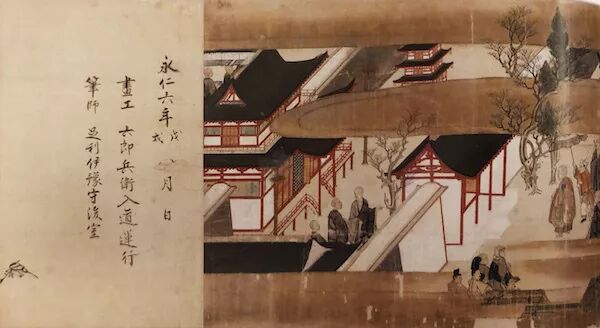 永仁六年戊戌 月 日
畫工 六郎兵衛入道蓮行
筆師 足利伊豫守後室